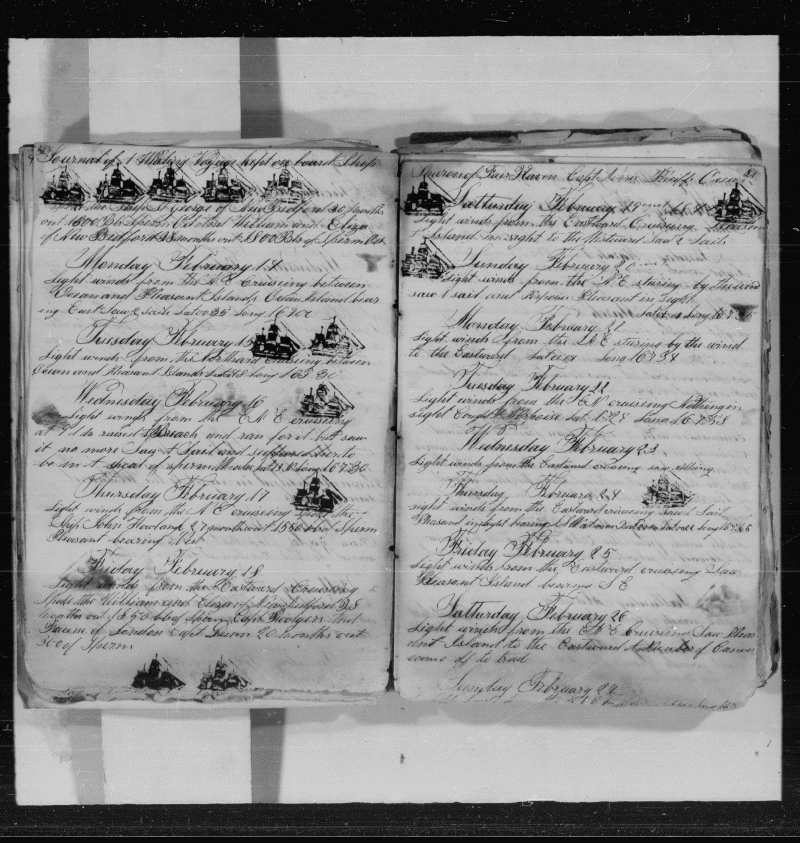 Journal of A Whaling Voyage kept on board Ship
the Ship St George of New Bedford 30 months
out 1800 bbls Sperm William and Eliza
of New Bedford 38 months out 1800 Bbls of Sperm
Monday February 14
Light winds from the N E cruising between
Ocean and Pleasant Islands Ocean Island bear
ing East Saw 2 sails Lat 00 35 Long
Tuesday February 15
Light winds from the Northward cruising between
Ocean and Pleasant Islands Long
Wednesday February 16
Light winds from the E N E cruiseing
at raised a Breach and ran for it but saw
it no more Saw 1 Sail and supposed her to
be in a sheal of sperm whales Long 167 30
Thursday February 17
Light winds from the N E cruiseing the
Ship John Howland 27 months out 1350 bbls Sperm
Pleasant bearing West
Friday February 18
Light winds from the Eastward Cruiseing
Spoke the William and Eliza of New Bedford 38
months out 1850 bbls of Sperm Capt Rodgers and
of London Capt 20 months out
300 of Sperm
Sharon of Fair Haven Capt
Satturday February 19
Light winds from the Eastward Cruseing Pleasant
Island in sight to the Westward Saw 2 Sails
Sunday February
Light winds from the N E stering by the wind
saw 1 sail and Pleasant in sight
Long 167 35
Monday February 21
Light winds from the N E stering by the wind
to the Eastward Lat Long 167 34
Tuesday February 22
Light winds from the E N cruiseing Nothing in
sight Caught Lat Long 167 38
Wednesday February 23
Light winds from the Eastward cruising saw nothing
Thursday February 24
Light winds from the Eastward cruising saw 1 Sail
Pleasant in sight bearing S W Long
Friday February 25
Light winds from the Eastward cruiseing Saw
Pleasant Island bearing S E
Satturday February 26
Light winds from the E N E Cruiseing Saw Pleas
ant Island to the Eastward A Number of Canoes
come off to trad
Sunday February 27